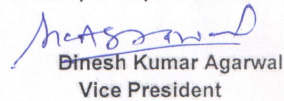 Dinesh Kumar Agarwal
Vice President